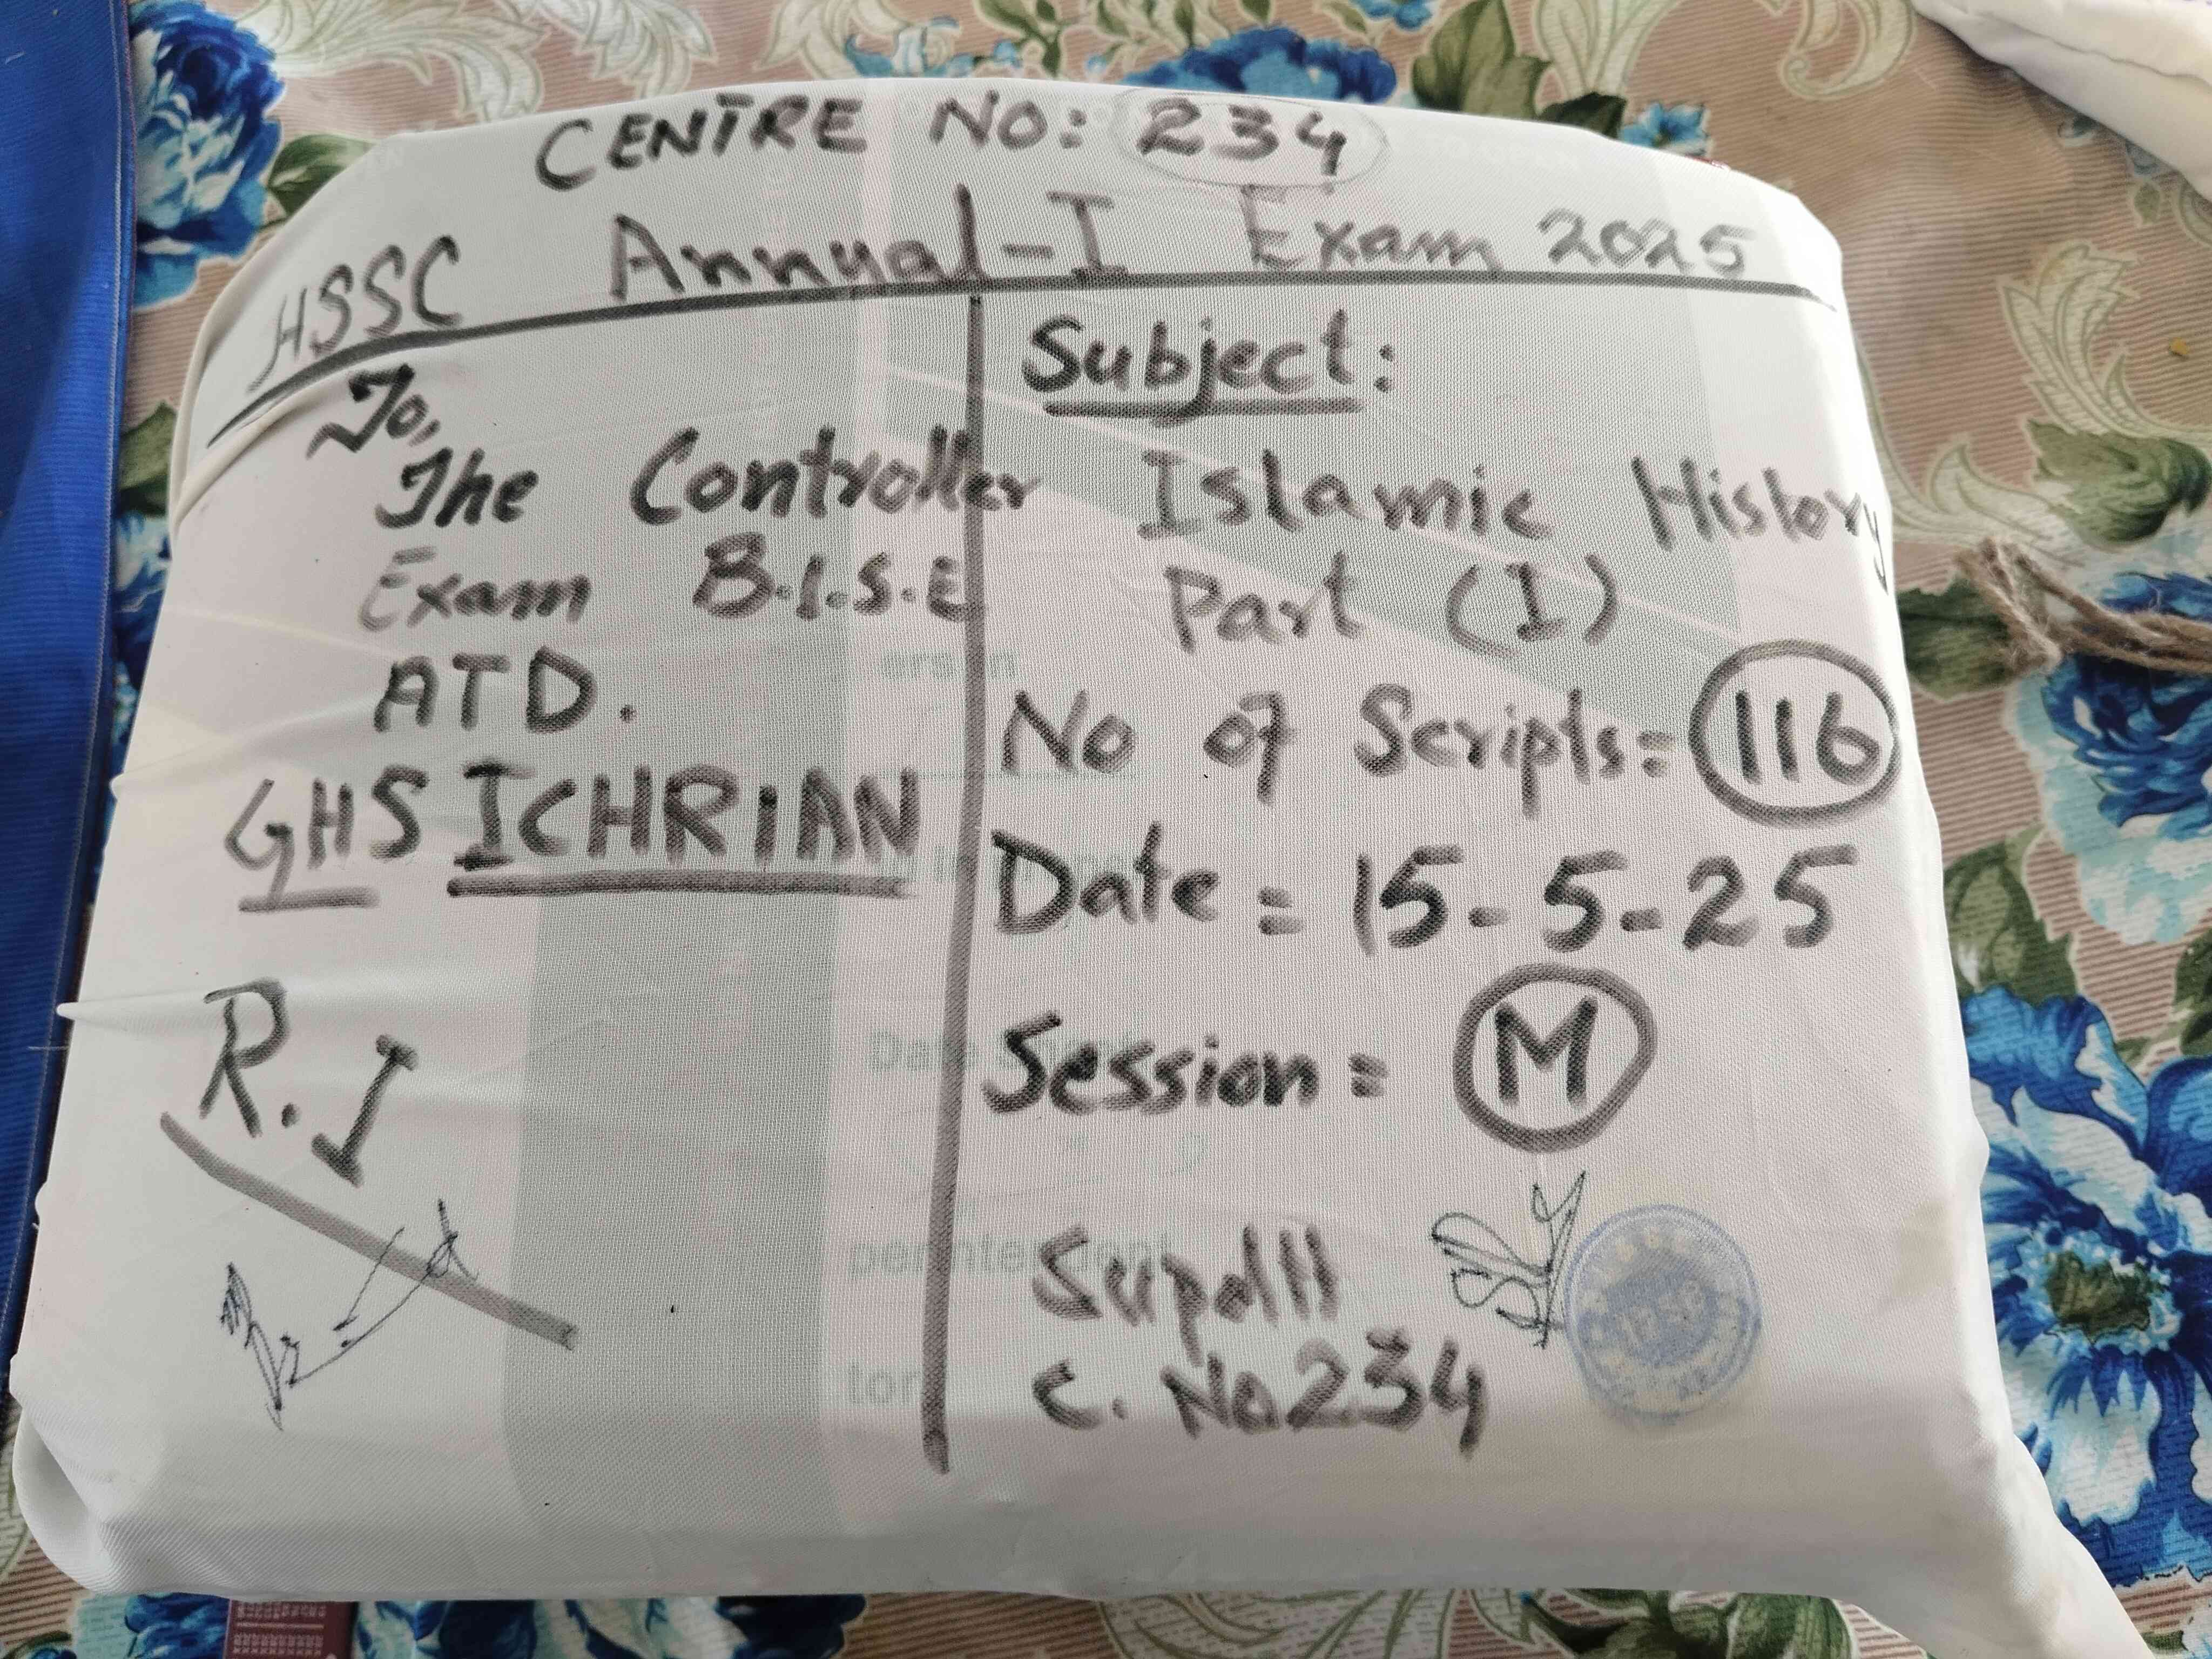 CENTRE NO: 234
HSSC Annual-I Exam 2025
To,
The Controller
Exam B.I.S.E
ATD.
GHS ICHRIAN
R.I
Subject:
Islamic History
Part (I)
No of Scripts= 116
Date = 15-5-25
Session = M
Supdtt
C. No 234